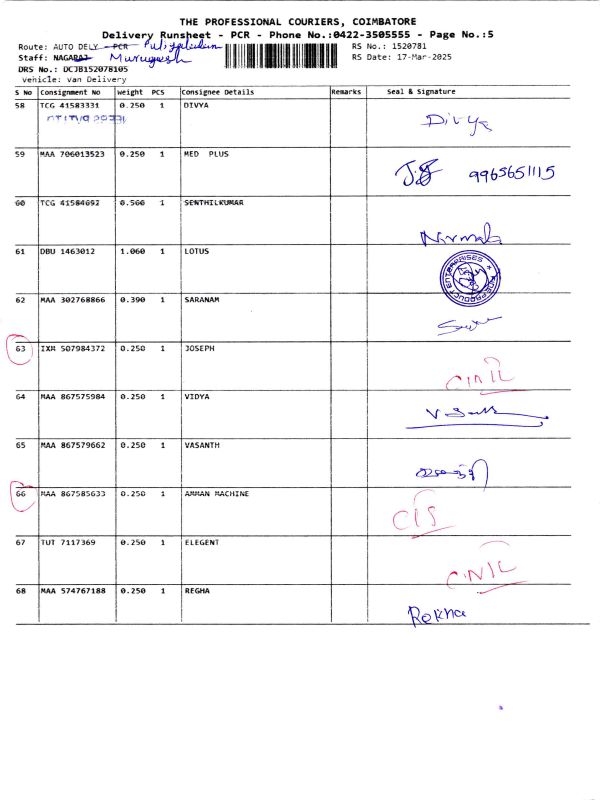 THE PROFESSIONAL COURIERS, COIMBATORE
Delivery Runsheet - PCR - Phone No.:0422-3505555 - Page No.:5
Route: AUTO DELY - PCR RS No.: 1520781
Staff: NAGARAJ Murugesh RS Date: 17-Mar-2025
DRS No.: DCJB152078105
vehicle: van Delivery
S No Consignment No Weight PCS Consignee Details Remarks Seal & Signature
58 TCG 41583331 0.250 1 DIVYA
Divya
59 MAA 706013523 0.250 1 MED PLUS
9965651115
60 TCG 41584692 0.560 1 SENTHILKUMAR
Nirmala
61 DBU 1463012 1.060 1 LOTUS
62 MAA 302768866 0.390 1 SARANAM
63 IXM 507984372 0.250 1 JOSEPH
64 MAA 867575984 0.250 1 VIDYA
65 MAA 867579662 0.250 1 VASANTH
66 MAA 867585633 0.250 1 AMMAN MACHINE
67 TUT 7117369 0.250 1 ELEGENT
68 MAA 574767188 0.250 1 REGHA
Rekha